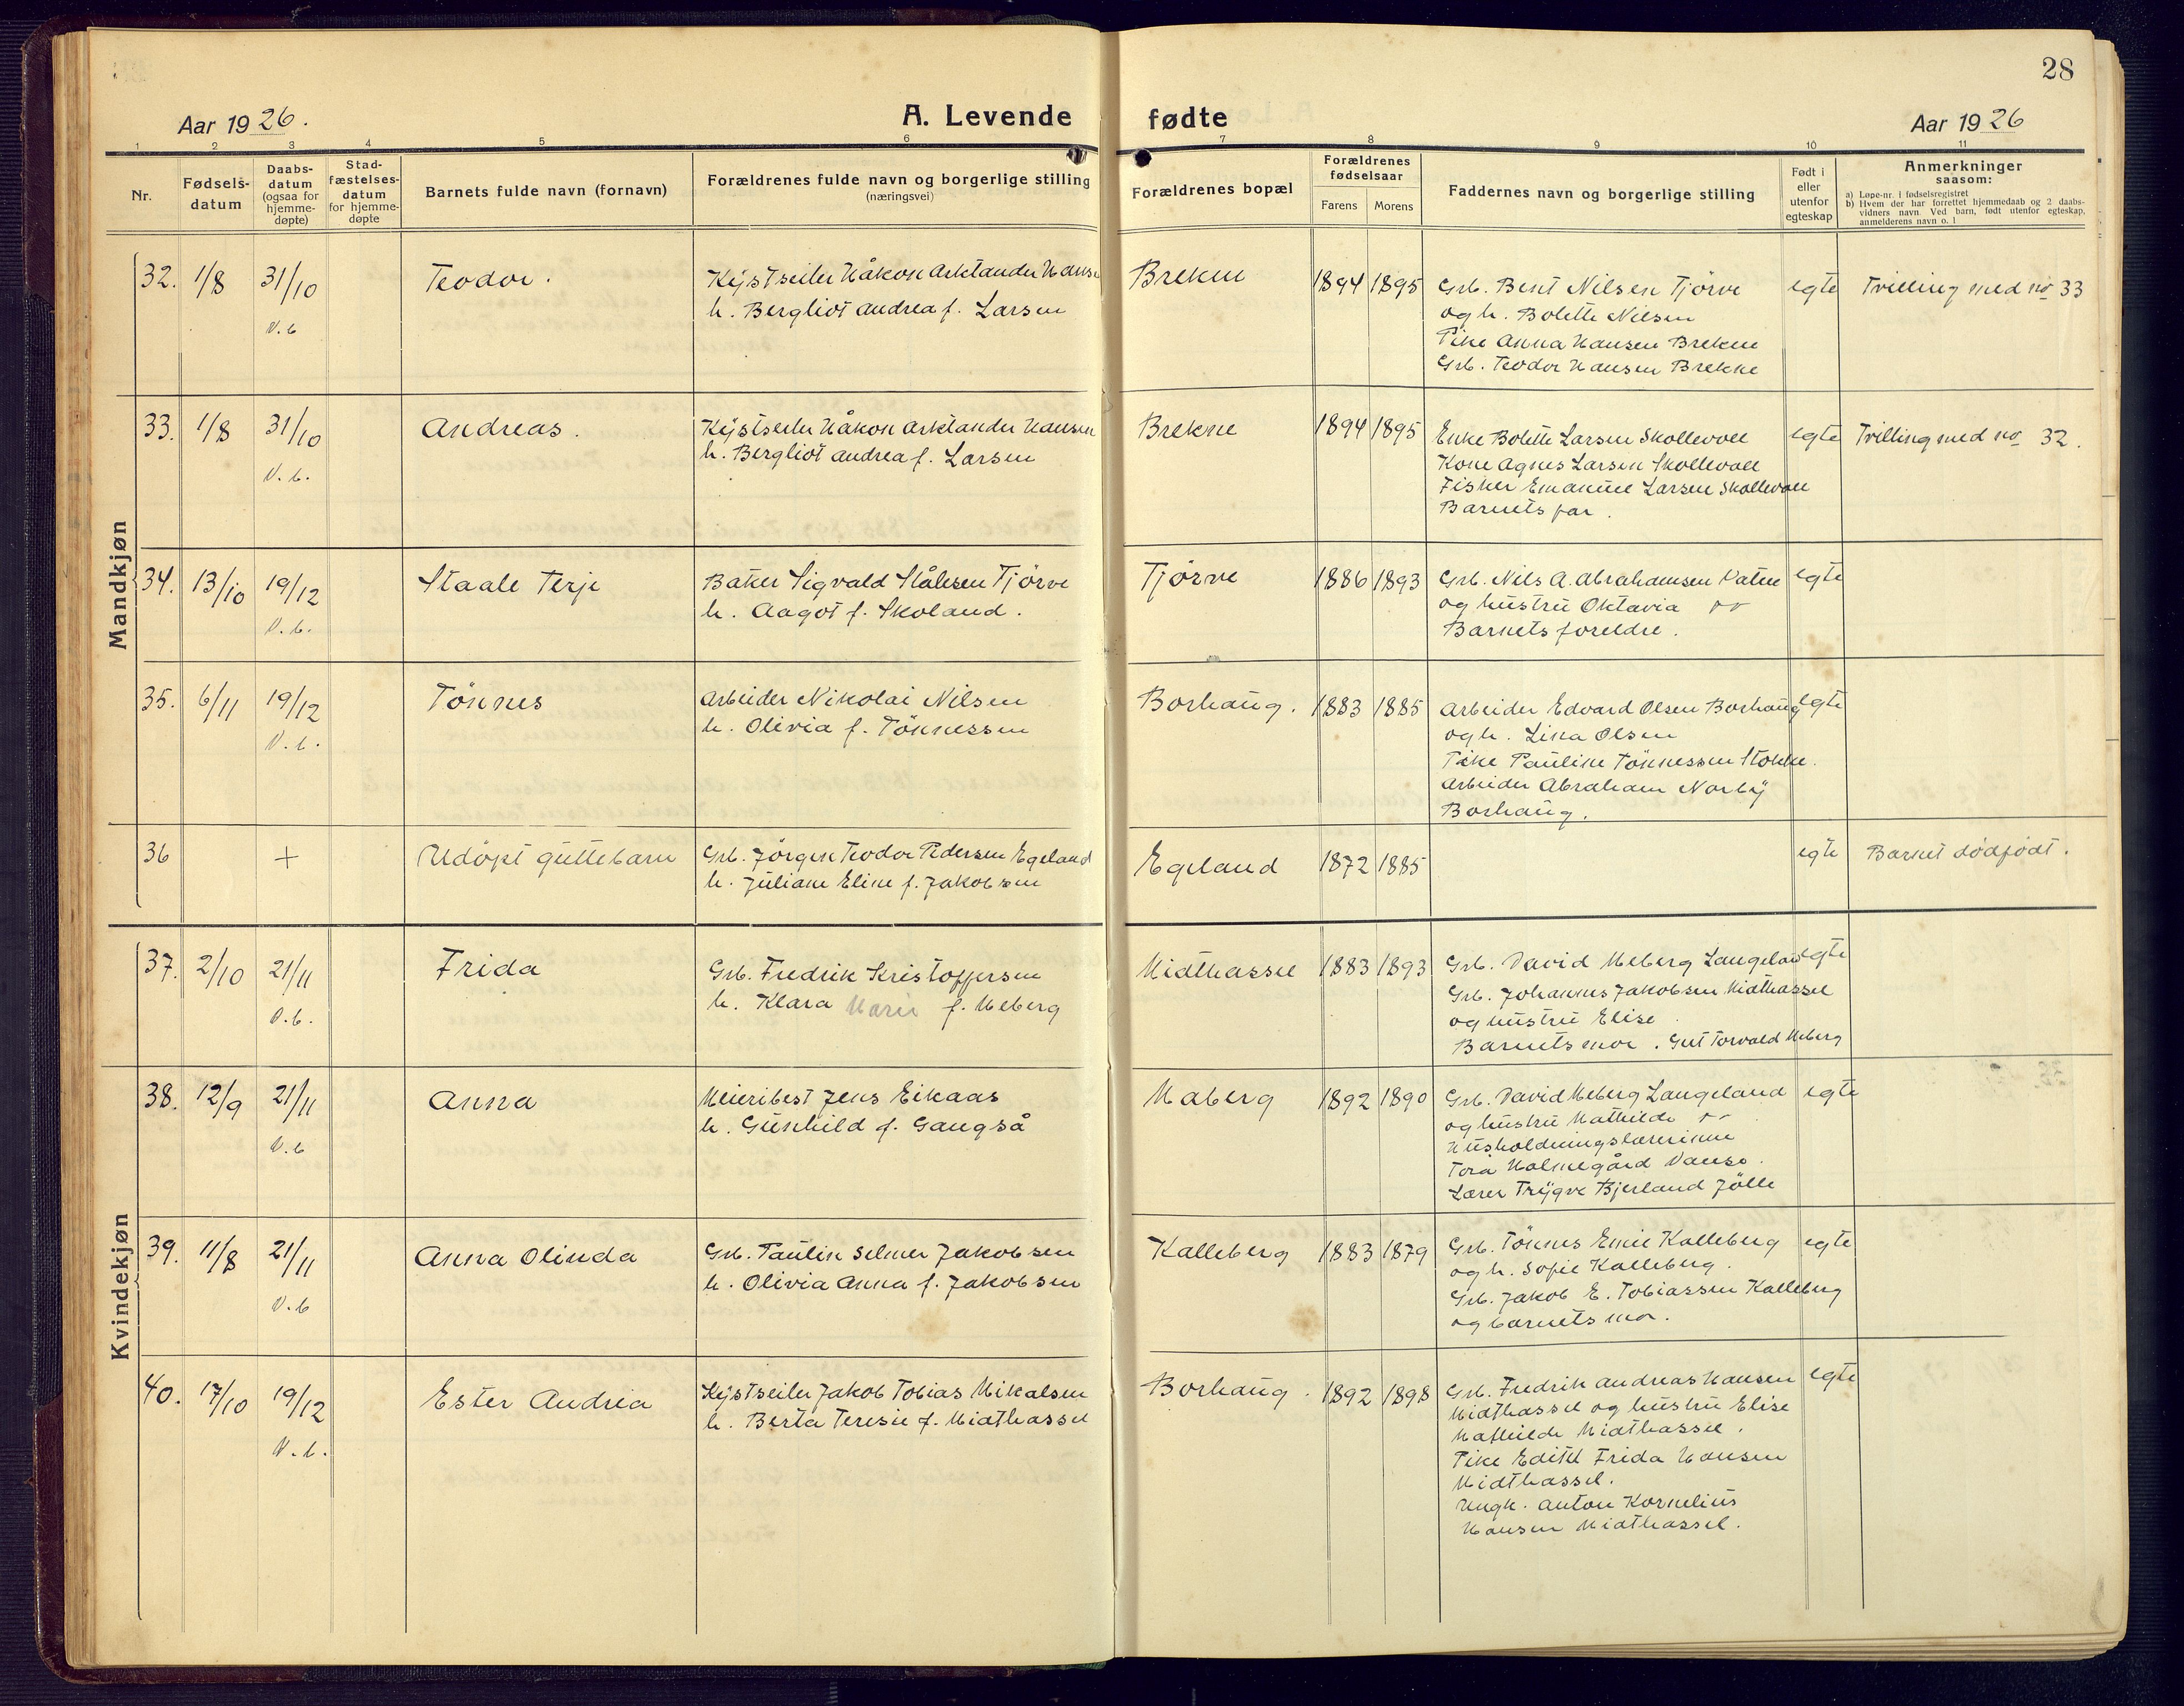 28
Aar 1926.
A. Levende
fødte
Aar 1926
1 2 3 4 5 6
7 8 9 10 11
Nr.
Fødsels-
datum
Daabs-
datum
(ogsaa for
hjemme-
døpte)
Stad-
fæstelses-
datum
for hjemme-
døpte
Barnets fulde navn (fornavn)
Forældrenes fulde navn og borgerlige stilling
(næringsvei)
Forældrenes bopæl
Forældrenes
fødselsaar
Farens Morens
Faddernes navn og borgerlige stilling
Født i
eller
utenfor
egteskap
Anmerkninger
saasom:
a) Løpe-nr. i fødselsregistret
b) Hvem der har forrettet hjemmedaab og 2 daabs-
vidners navn. Ved barn, født utenfor egteskap,
anmelderens navn o. l
Mandkjøn
32. 1/8 31/10 Teodor. Kystseiler Håkon Arktander Hansen
V. b
h. Bergliot Andrea f. Larsen
Brekne 1894 1895 Grb. Bent Nilsen Tjörve egte Tvilling med no 33
og h. Bolette Nilsen
Pike Anna Hansen Brekne
Grb. Teodor Hansen Brekke
33. 1/8 31/10 Andreas. Kystseiler Håkon Arktander Hansen
V. b.
h. Bergliot Andrea f. Larsen
Brekne 1894 1895 Enke Bolette Larsen Skollevoll egte Tvilling med no 32.
Kone Agnes Larsen Skollevoll
Fisker Emanuel Larsen Skollevoll
Barnets far.
34. 13/10 19/12 Staale Terje Baker Sigvald Stålesen Tjörve
V. b.
h. Aagot f. Skoland.
Tjörve 1886 1893 Grb. Nils A. Abrahamsen Vatne egte
og hustru Oktavia
Barnets foreldre.
35. 6/11 19/12 Tönnes Arbeider Nikolai Nilsen
V. b.
h. Olivia f. Tönnessen
Borhaug. 1883 1885 Arbeider Edvard Olsen Borhaug egte
og h. Lina Olsen
Pike Pauline Tönnessen Stokke.
Arbeider Abraham Norby
Borhaug.
36 + Udöpt guttebarn Grb. Jörgen Teodor Pedersen Egeland
h. Juliane Eline f. Jakobsen
Egeland 1872 1885 egte Barnet dödfödt.
Kvindekjøn
37. 2/10 21/11 Frida Grb. Fredrik Kristoffersen
V. b.
h. Klara Marie f. Meberg
Midthassel 1883 1893 Grb. David Meberg Langeland egte
Grb. Johannes Jakobsen Midthassel
og hustru Elise
Barnets mor. Gut Torvald Meberg
38. 12/9 21/11 Anna Meieribest Jens Eikaas
V. b
h. Gunhild f. Gangså
Maberg 1892 1890 Grb. David Meberg Langeland egte
og hustru Mathilde
Husholdningslærerinne
Tora Holmegård Vanse.
Lærer Trygve Bjerland Jölle
39. 11/8 21/11 Anna Olinda Grb. Paulin Selmer Jakobsen
V. b
h. Olivia Anna f. Jakobsen
Kalleberg 1883 1879 Grb. Tönnes Emil Kalleberg egte
og h. Sofie Kalleberg.
Grb. Jakob E. Tobiassen Kalleberg
og barnets mor.
40. 17/10 19/12 Ester Andrea Kystseiler Jakob Tobias Mikalsen
V. b.
h. Berta Teresie f. Midthassel
Borhaug. 1892 1898 Grb. Fredrik Andreas Hansen egte
Midthassel og hustru Elise
Mathilde Midthassel.
Pike Edith Frida Hansen
Midthassel.
Ungk. Anton Kornelius
Hansen Midthassel.